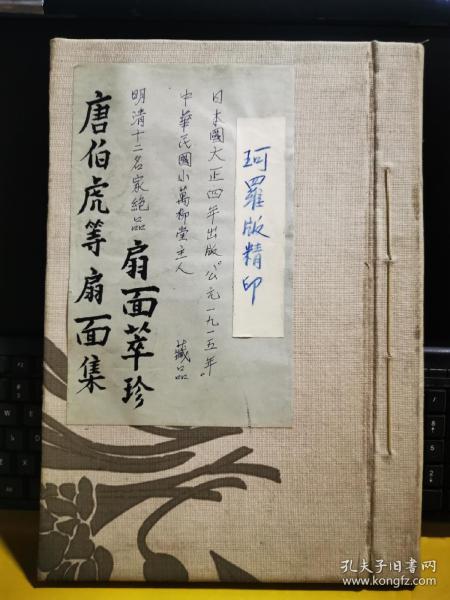 珂羅版精印
日本國大正四年出版“公元一九一五年”
中華民國小萬柳堂主人 藏品
明清十二名家絕品 扇面萃珍
唐伯虎等扇面集
孔夫子旧书网
www.kongfz.com